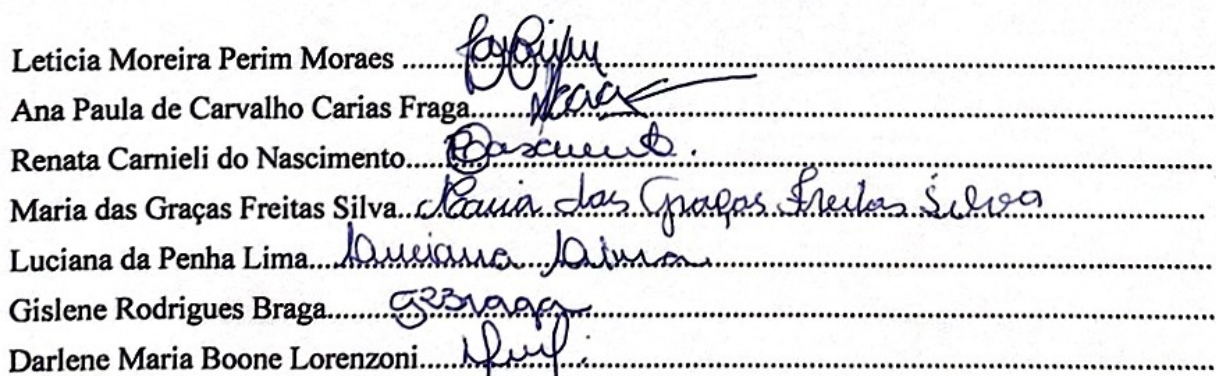 Leticia Moreira Perim Moraes ........
Ana Paula de Carvalho Carias Fraga........
Renata Carnieli do Nascimento.... Nascimento.
Maria das Graças Freitas Silva.. Maria das Graças Freitas Silva
Luciana da Penha Lima.... Luciana Lima
Gislene Rodrigues Braga........ GRBraga
Darlene Maria Boone Lorenzoni.....